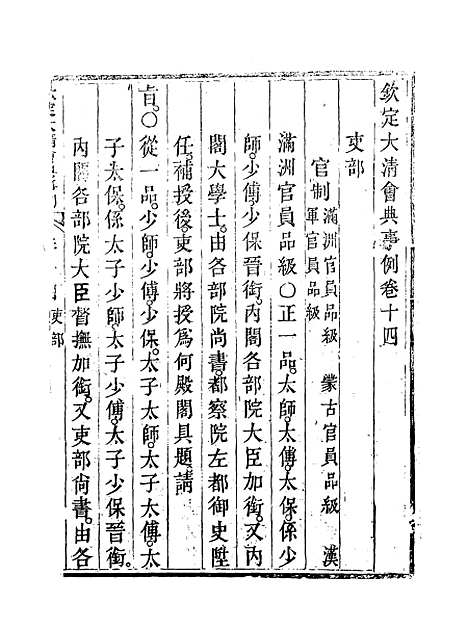 欽定大清會典事例卷十四
吏部
官制 滿洲官員品級 蒙古官員品級 漢
軍官員品級
滿洲官員品級〇正一品。太師。太傅。太保。係少
師。少傅。少保晉銜。內閣各部院大臣加銜。又內
閣大學士。由各部院尚書。都察院左都御史陞
任。補授後。吏部將授爲何殿閣具題請
旨。〇從一品。少師。少傅。少保。太子太師。太子太傅。太
子太保。係太子少師。太子少傅。太子少保晉銜。
內閣各部院大臣督撫加銜。又吏部尙書。由各
吏部